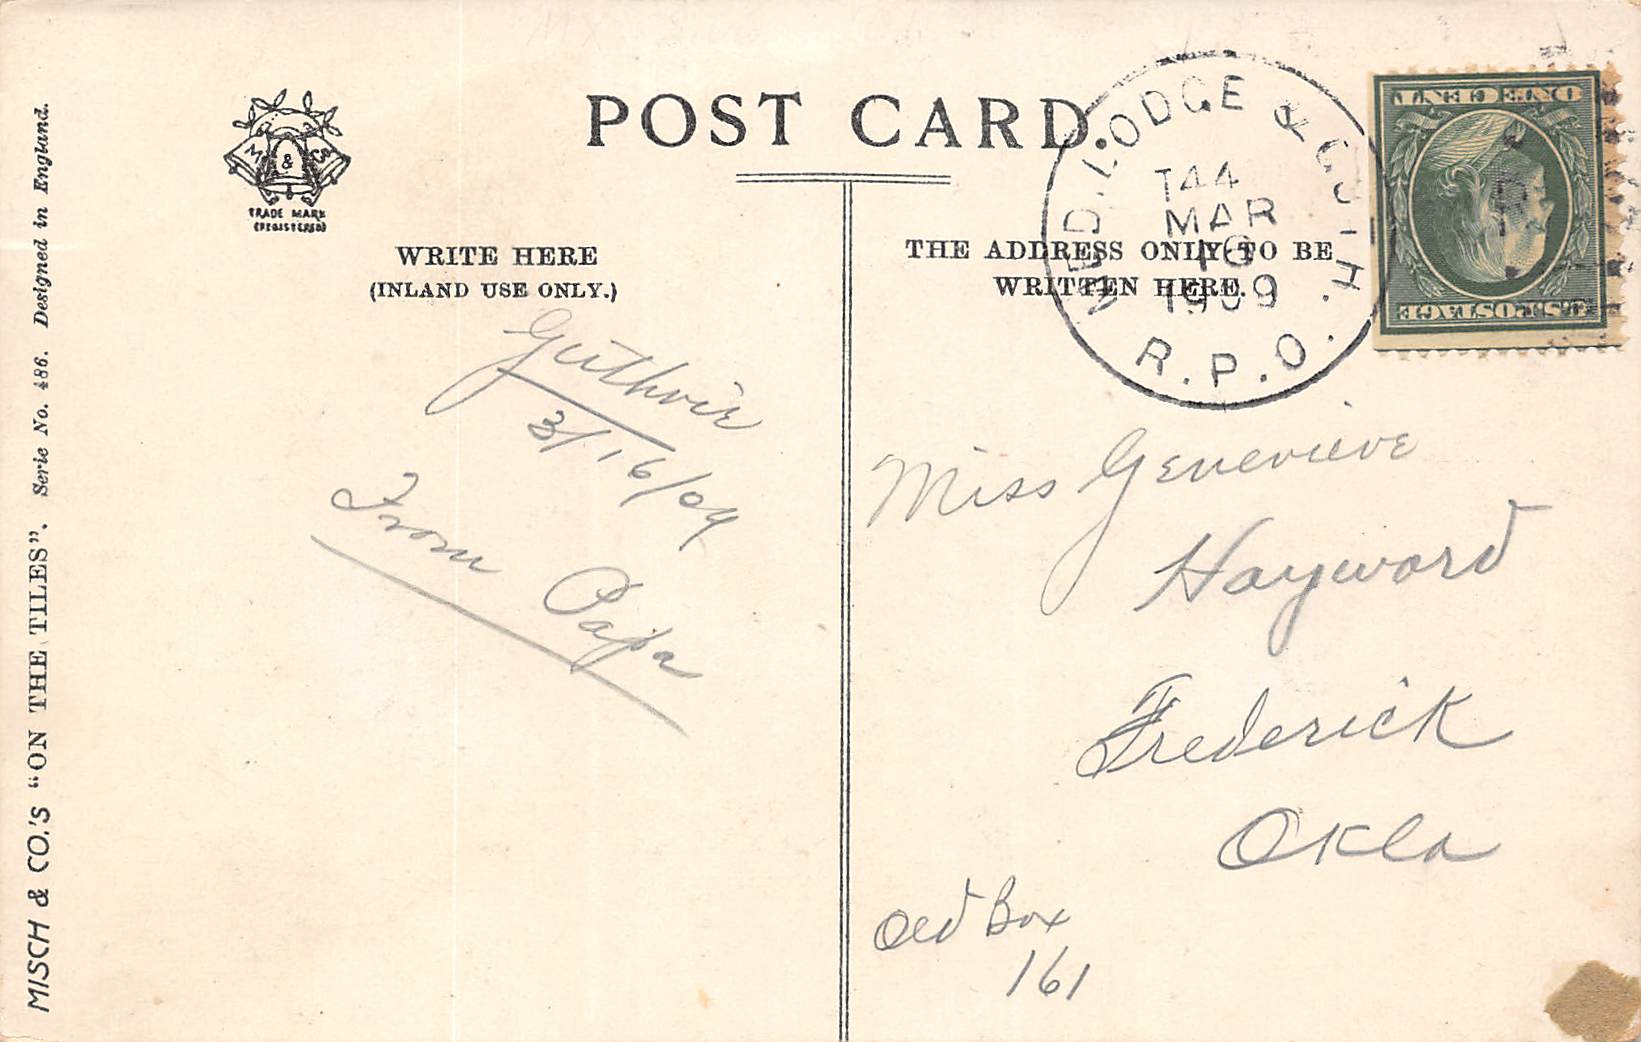 MISCH & CO.'S "ON THE TILES". Serie No. 486. Designed in England.
M & S
TRADE MARK
(REGISTERED)
POST CARD
WRITE HERE
(INLAND USE ONLY.)
THE ADDRESS ONLY TO BE
WRITTEN HERE.
MED. LODGE & GUTH.
T44
MAR
16
1909
R.P.O.
U.S. POSTAGE
ONE CENT
Guthrie
3/16/09
From Papa
Miss Genevieve
Hayward
Frederick
Okla
Old Box
161